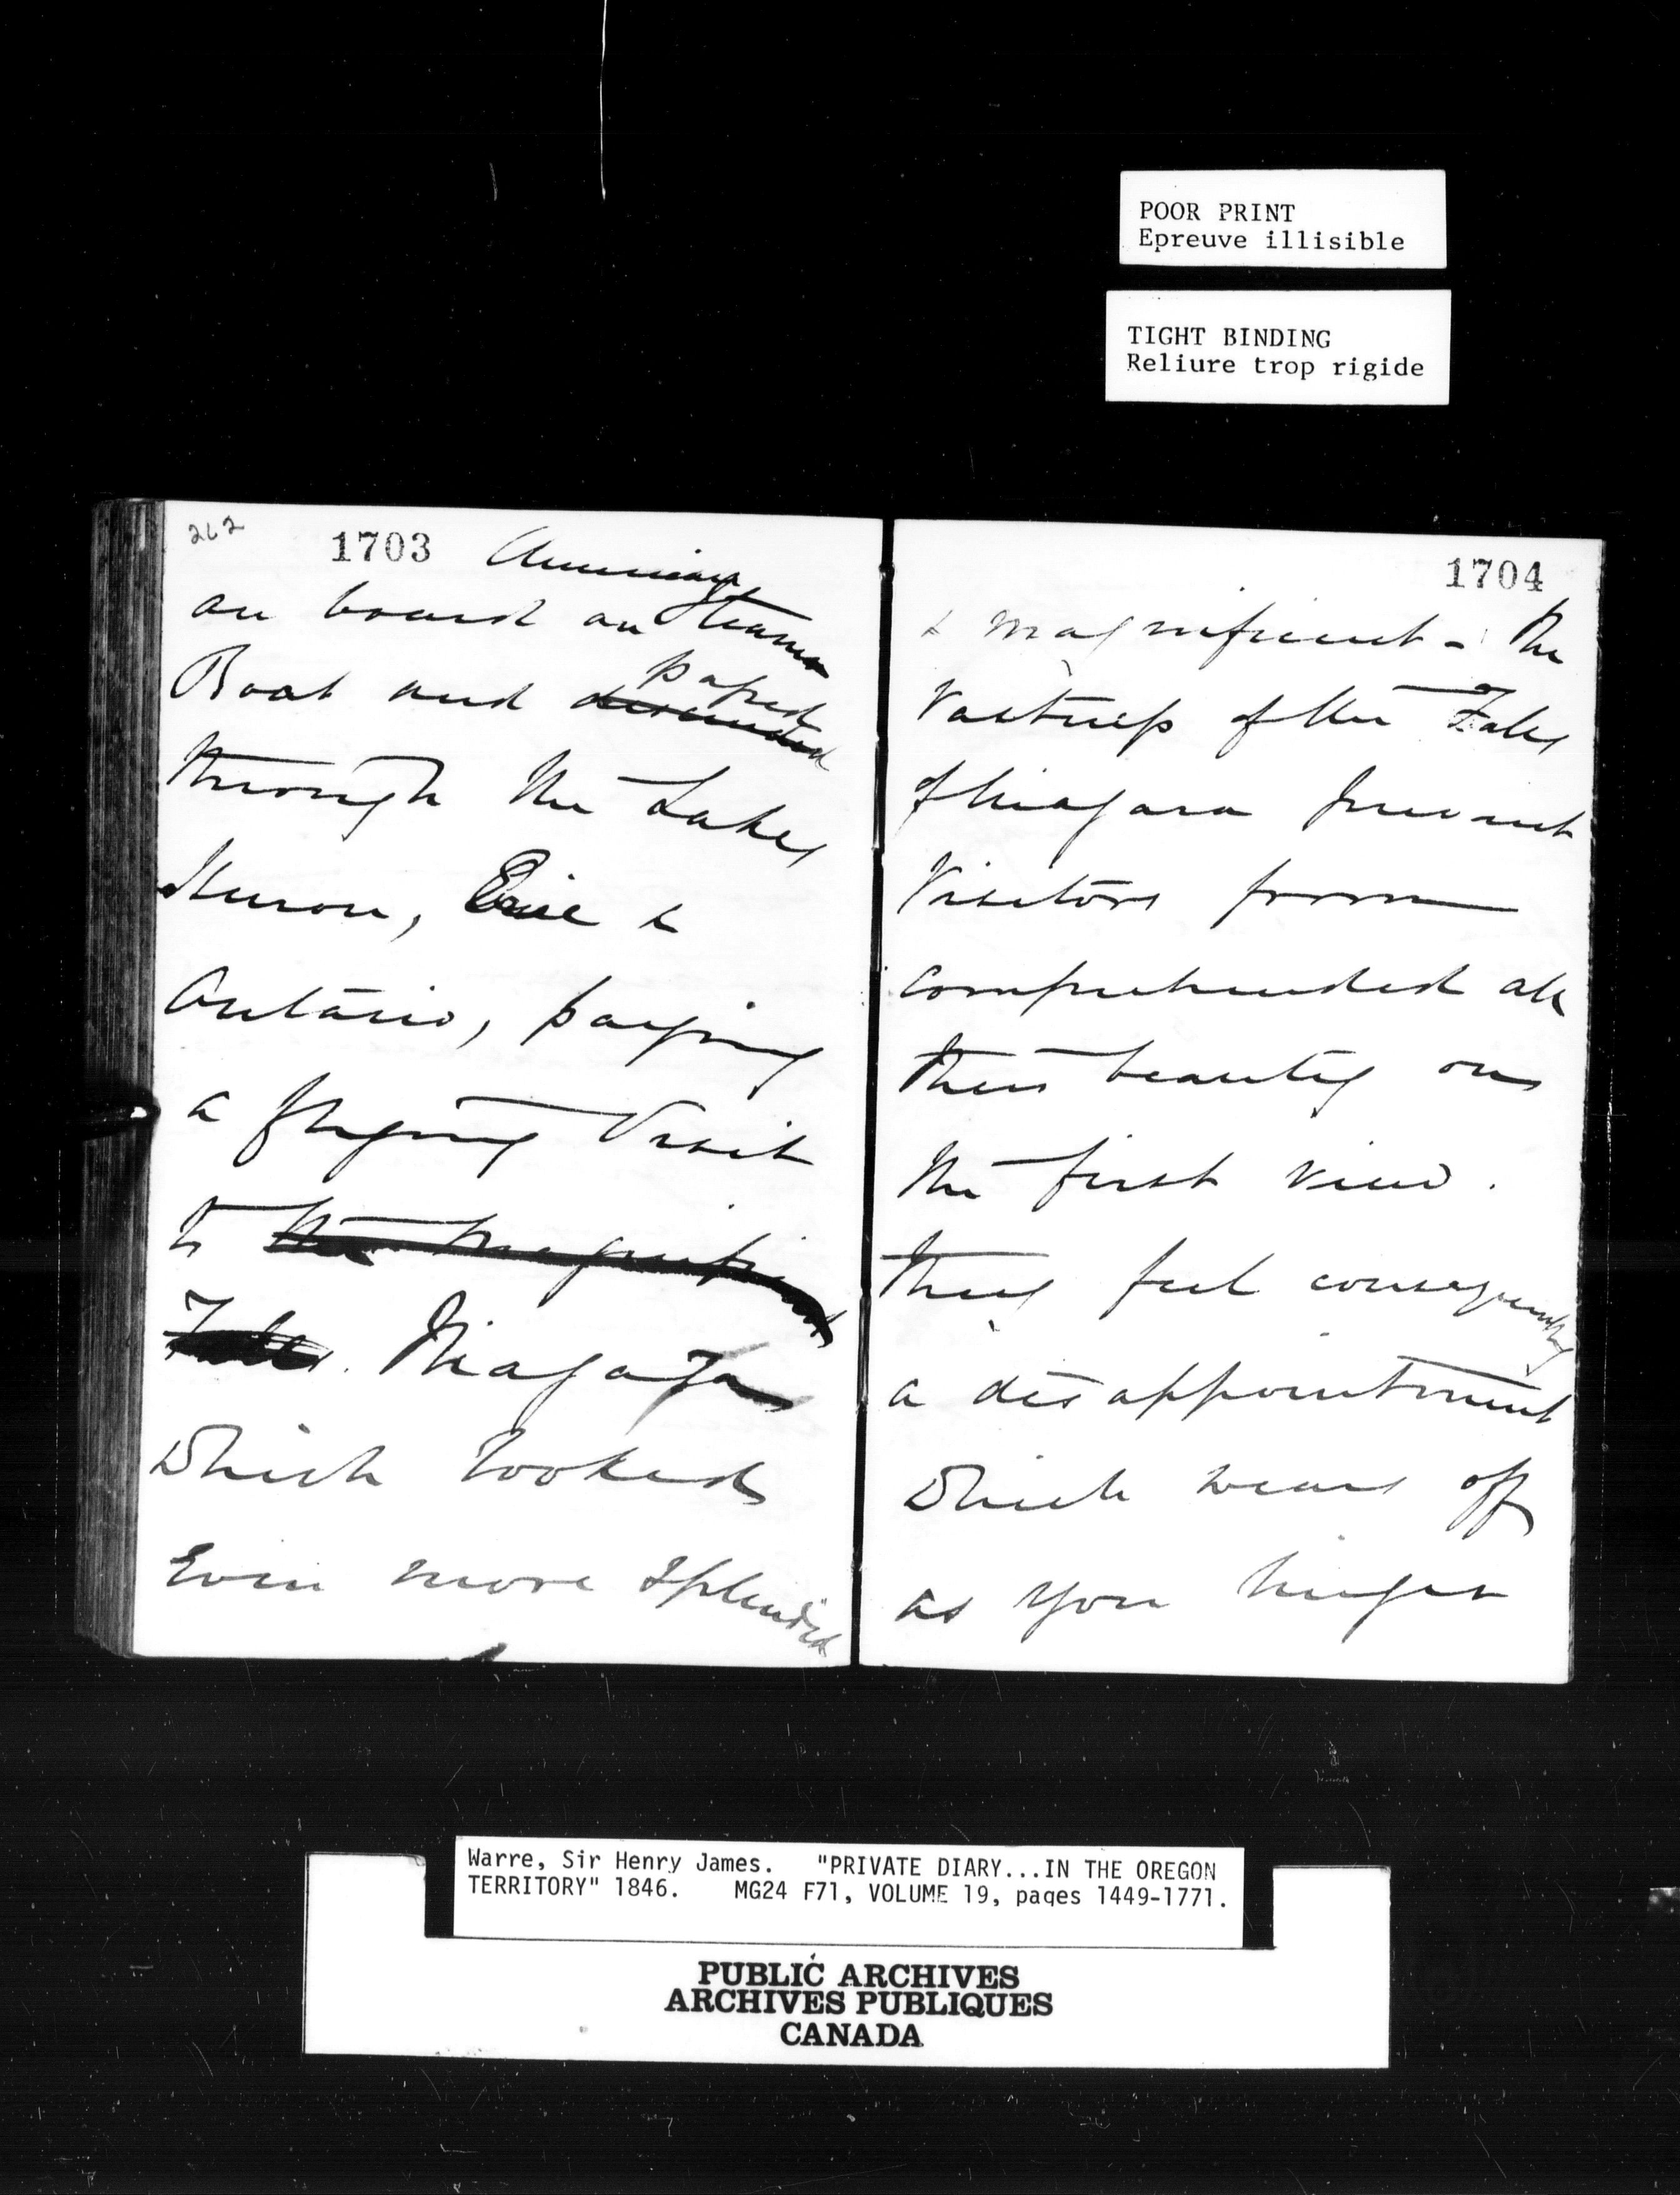 POOR PRINT
Epreuve illisible
TIGHT BINDING
Reliure trop rigide
262
1703
American
on board an Steam
Boat and descended
passed
through the Lakes
Huron, Erie &
Ontario, paying
a flying Visit
to the magnificent
Falls. Niagara
Which looked
Even more Splendid
1704
& magnificent - The
Vastness of the Falls
of Niagara prevent
Visitors from
comprehended all
their beauty on
the first view.
They feel consequently
a disappointment
Which wears off
as you linger
Warre, Sir Henry James. "PRIVATE DIARY...IN THE OREGON
TERRITORY" 1846. MG24 F71, VOLUME 19, pages 1449-1771.
PUBLIC ARCHIVES
ARCHIVES PUBLIQUES
CANADA